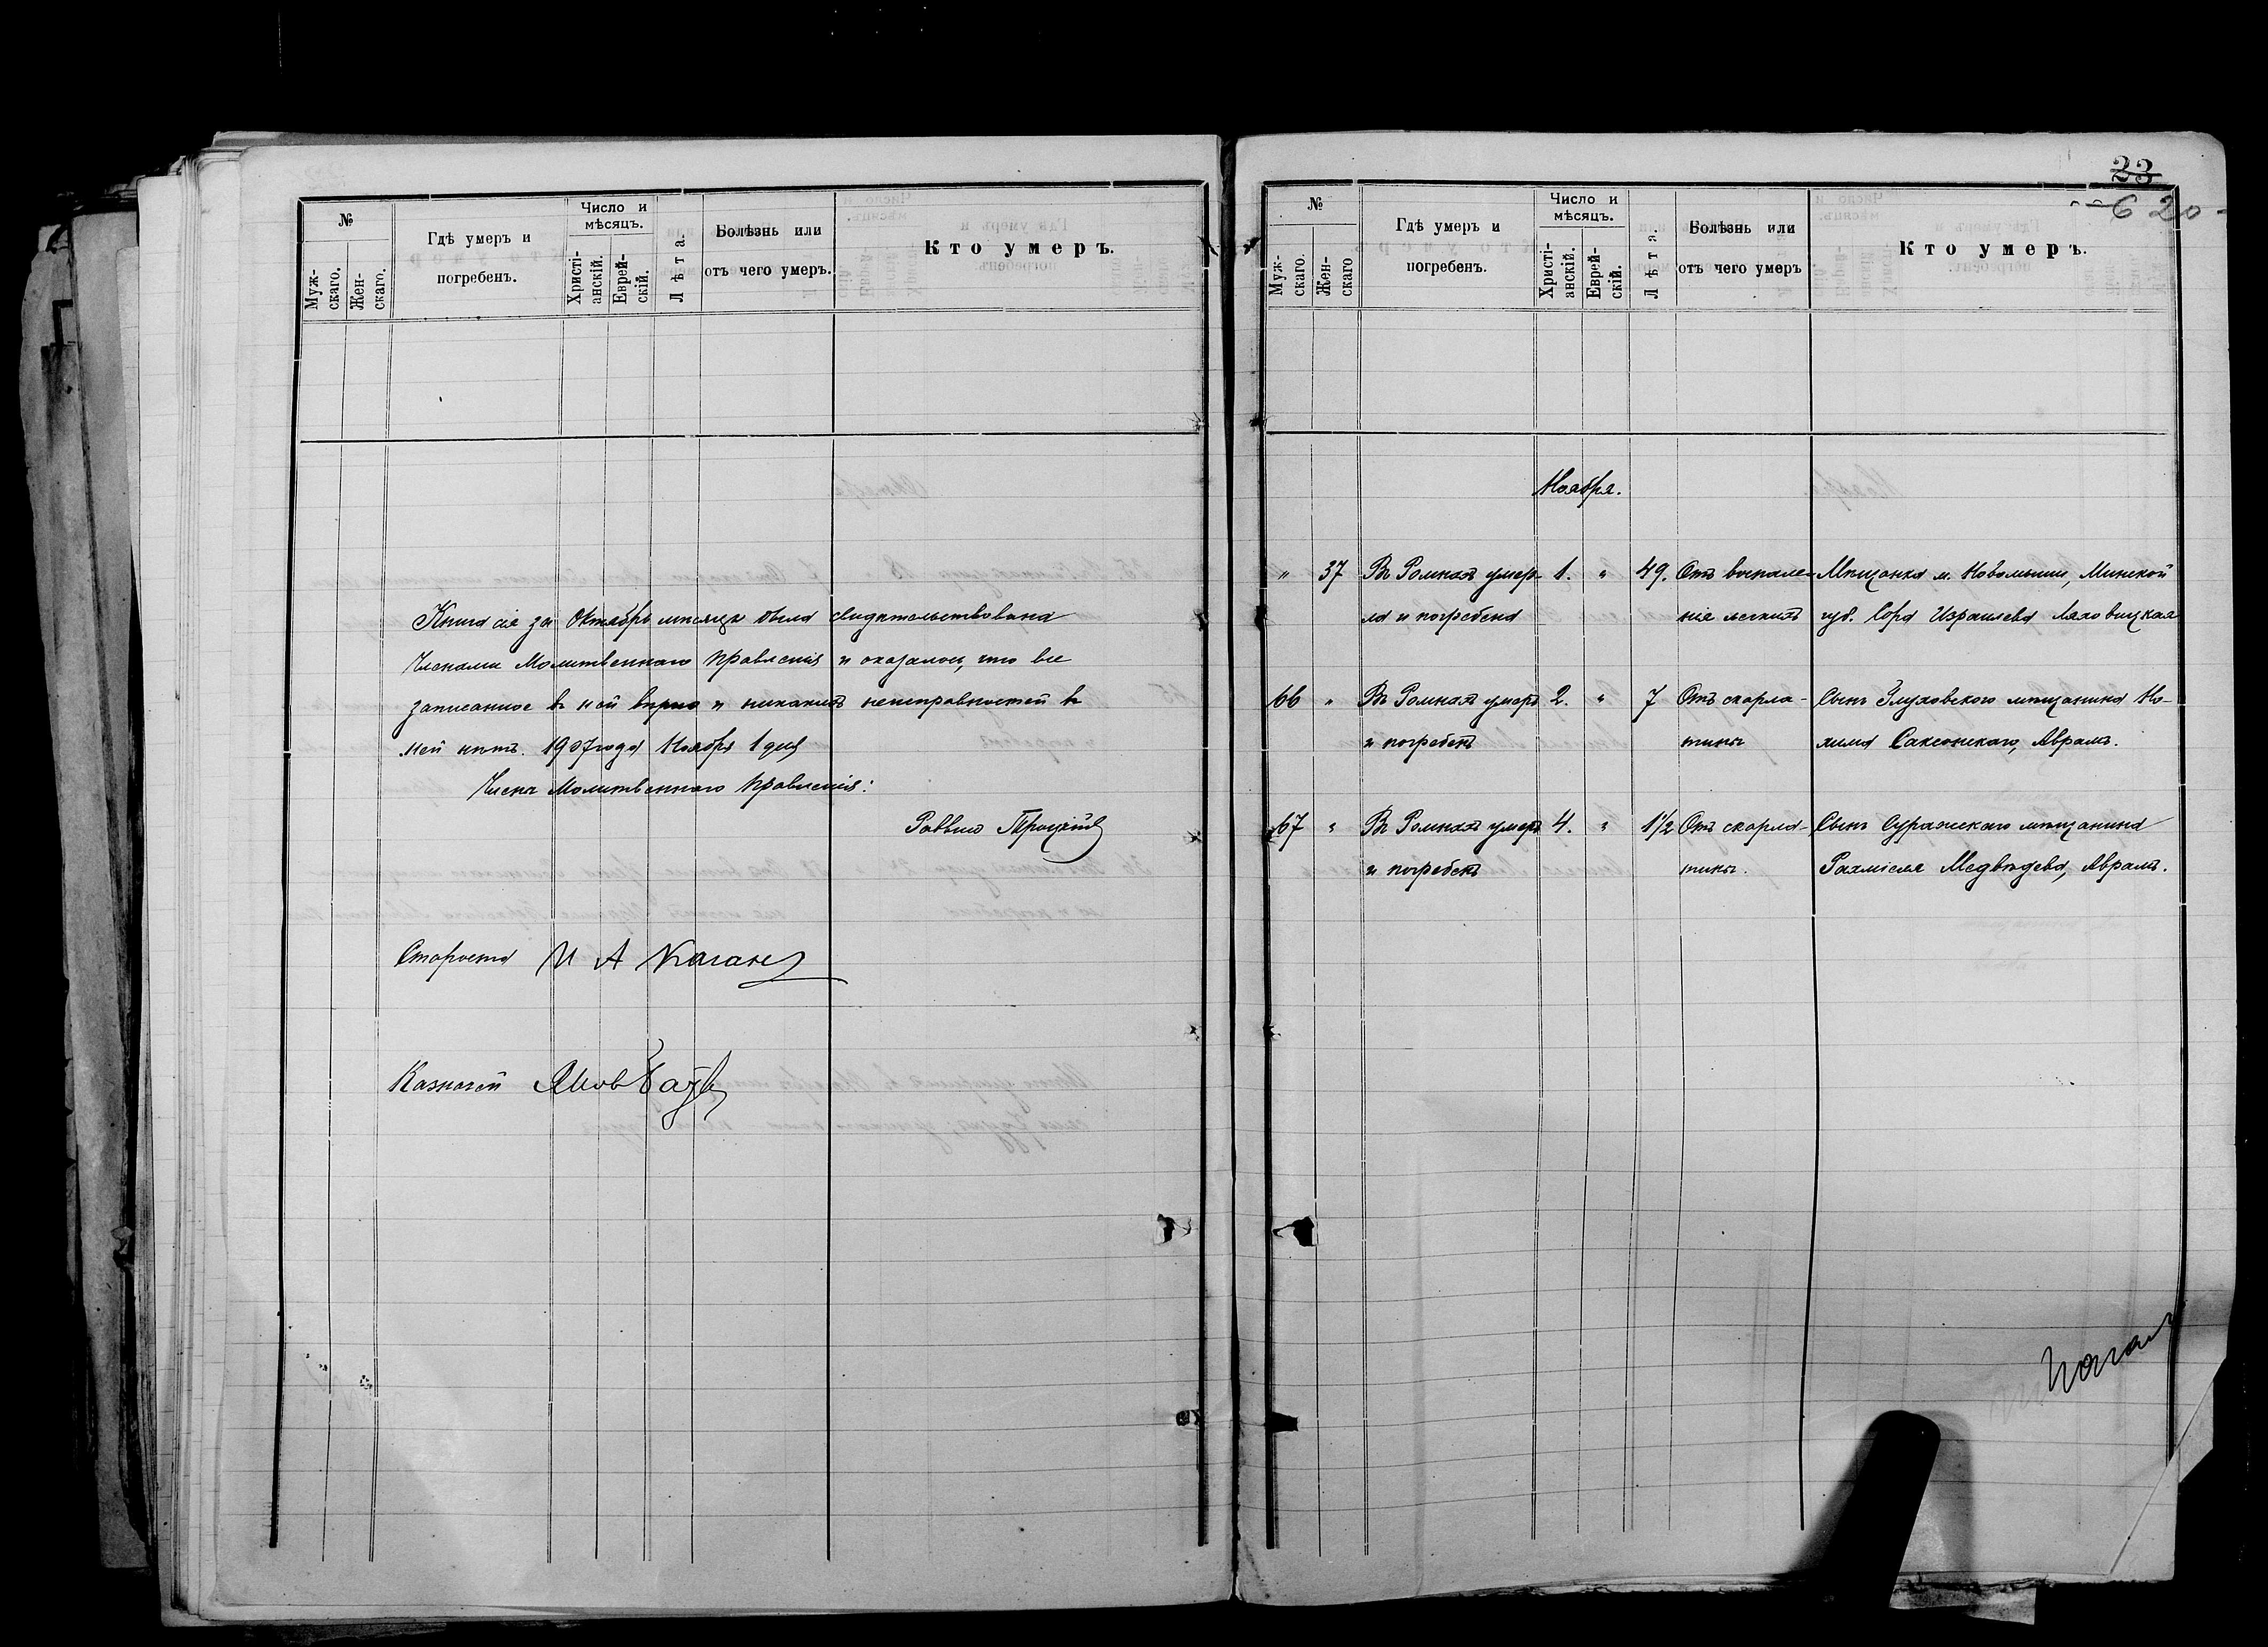 №
Муж-
скаго.
Жен-
скаго.
Гдѣ умеръ и
погребенъ.
Число и
мѣсяцъ.
Христі-
анскій.
Еврей-
скій.
Лѣта.
Болѣзнь или
отъ чего умеръ.
Кто умеръ.
Книга сія за Октябрь мѣсяцъ была свидѣтельствована
Членами Молитвеннаго Правленія и оказалось, что все
записанное въ ней вѣрно и никакихъ неисправностей въ
ней нѣтъ. 1907 года Ноября 1 дня
Члены Молитвеннаго Правленія:
Раввинъ Троцкій
Староста И А Каганъ
Казначей
23
6 20
№
Муж-
скаго.
Жен-
скаго
Гдѣ умеръ и
погребенъ.
Число и
мѣсяцъ.
Христі-
анскій.
Еврей-
скій.
Лѣта.
Болѣзнь или
отъ чего умеръ
Кто умеръ.
Ноября.
" 37 Въ Ромнахъ умер- 1. " 49. Отъ воспале- Мѣщанка м. Новомыши, Минской
ла и погребена нія легкихъ губ. Сора Израилева Ляховицкая
66 " Въ Ромнахъ умеръ 2. " 7 Отъ скарла- Сынъ Глуховского мѣщанина Но-
и погребенъ тины хима Саксонскаго, Абрамъ.
67 " Въ Ромнахъ умеръ 4. " 1½ Отъ скарла- Сынъ Суражскаго мѣщанина
и погребенъ тины. Рахміеля Медвѣдева, Абрамъ.
Каганъ